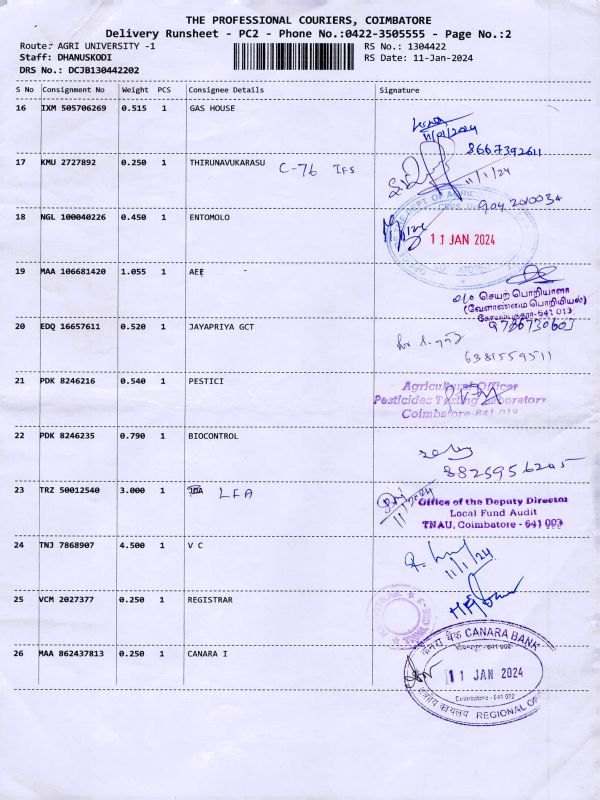 THE PROFESSIONAL COURIERS, COIMBATORE
Delivery Runsheet - PC2 - Phone No.:0422-3505555 - Page No.:2
Route: AGRI UNIVERSITY -1 RS No.: 1304422
Staff: DHANUSKODI RS Date: 11-Jan-2024
DRS No.: DCJB130442202
S No Consignment No Weight PCS Consignee Details Signature
16 IXM 505706269 0.515 1 GAS HOUSE
11/01/2024
8667392611
17 KMU 2727892 0.250 1 THIRUNAVUKARASU C-76 IFS
11/1/24
9042010034
18 NGL 100040226 0.450 1 ENTOMOLO
11 JAN 2024
19 MAA 106681420 1.055 1 AEE
செயற் பொறியாளர்
(வேளாண்மை பொறியியல்)
கோயம்புத்தூர்-641 013
9786730603
20 EDQ 16657611 0.520 1 JAYAPRIYA GCT
6381559511
21 PDK 8246216 0.540 1 PESTICI
Agricultural Officer
Pesticides Testing Laboratory
Coimbatore-641 013
22 PDK 8246235 0.790 1 BIOCONTROL
8825956205
23 TRZ 50012540 3.000 1 LFA
11/1/2024
Office of the Deputy Director
Local Fund Audit
TNAU, Coimbatore - 641 003
24 TNJ 7868907 4.500 1 V C
11/1/24
25 VCM 2027377 0.250 1 REGISTRAR
26 MAA 862437813 0.250 1 CANARA I
केनरा बैंक CANARA BANK
11 JAN 2024
Coimbatore - 641 002
क्षेत्रीय कार्यालय REGIONAL OFFICE